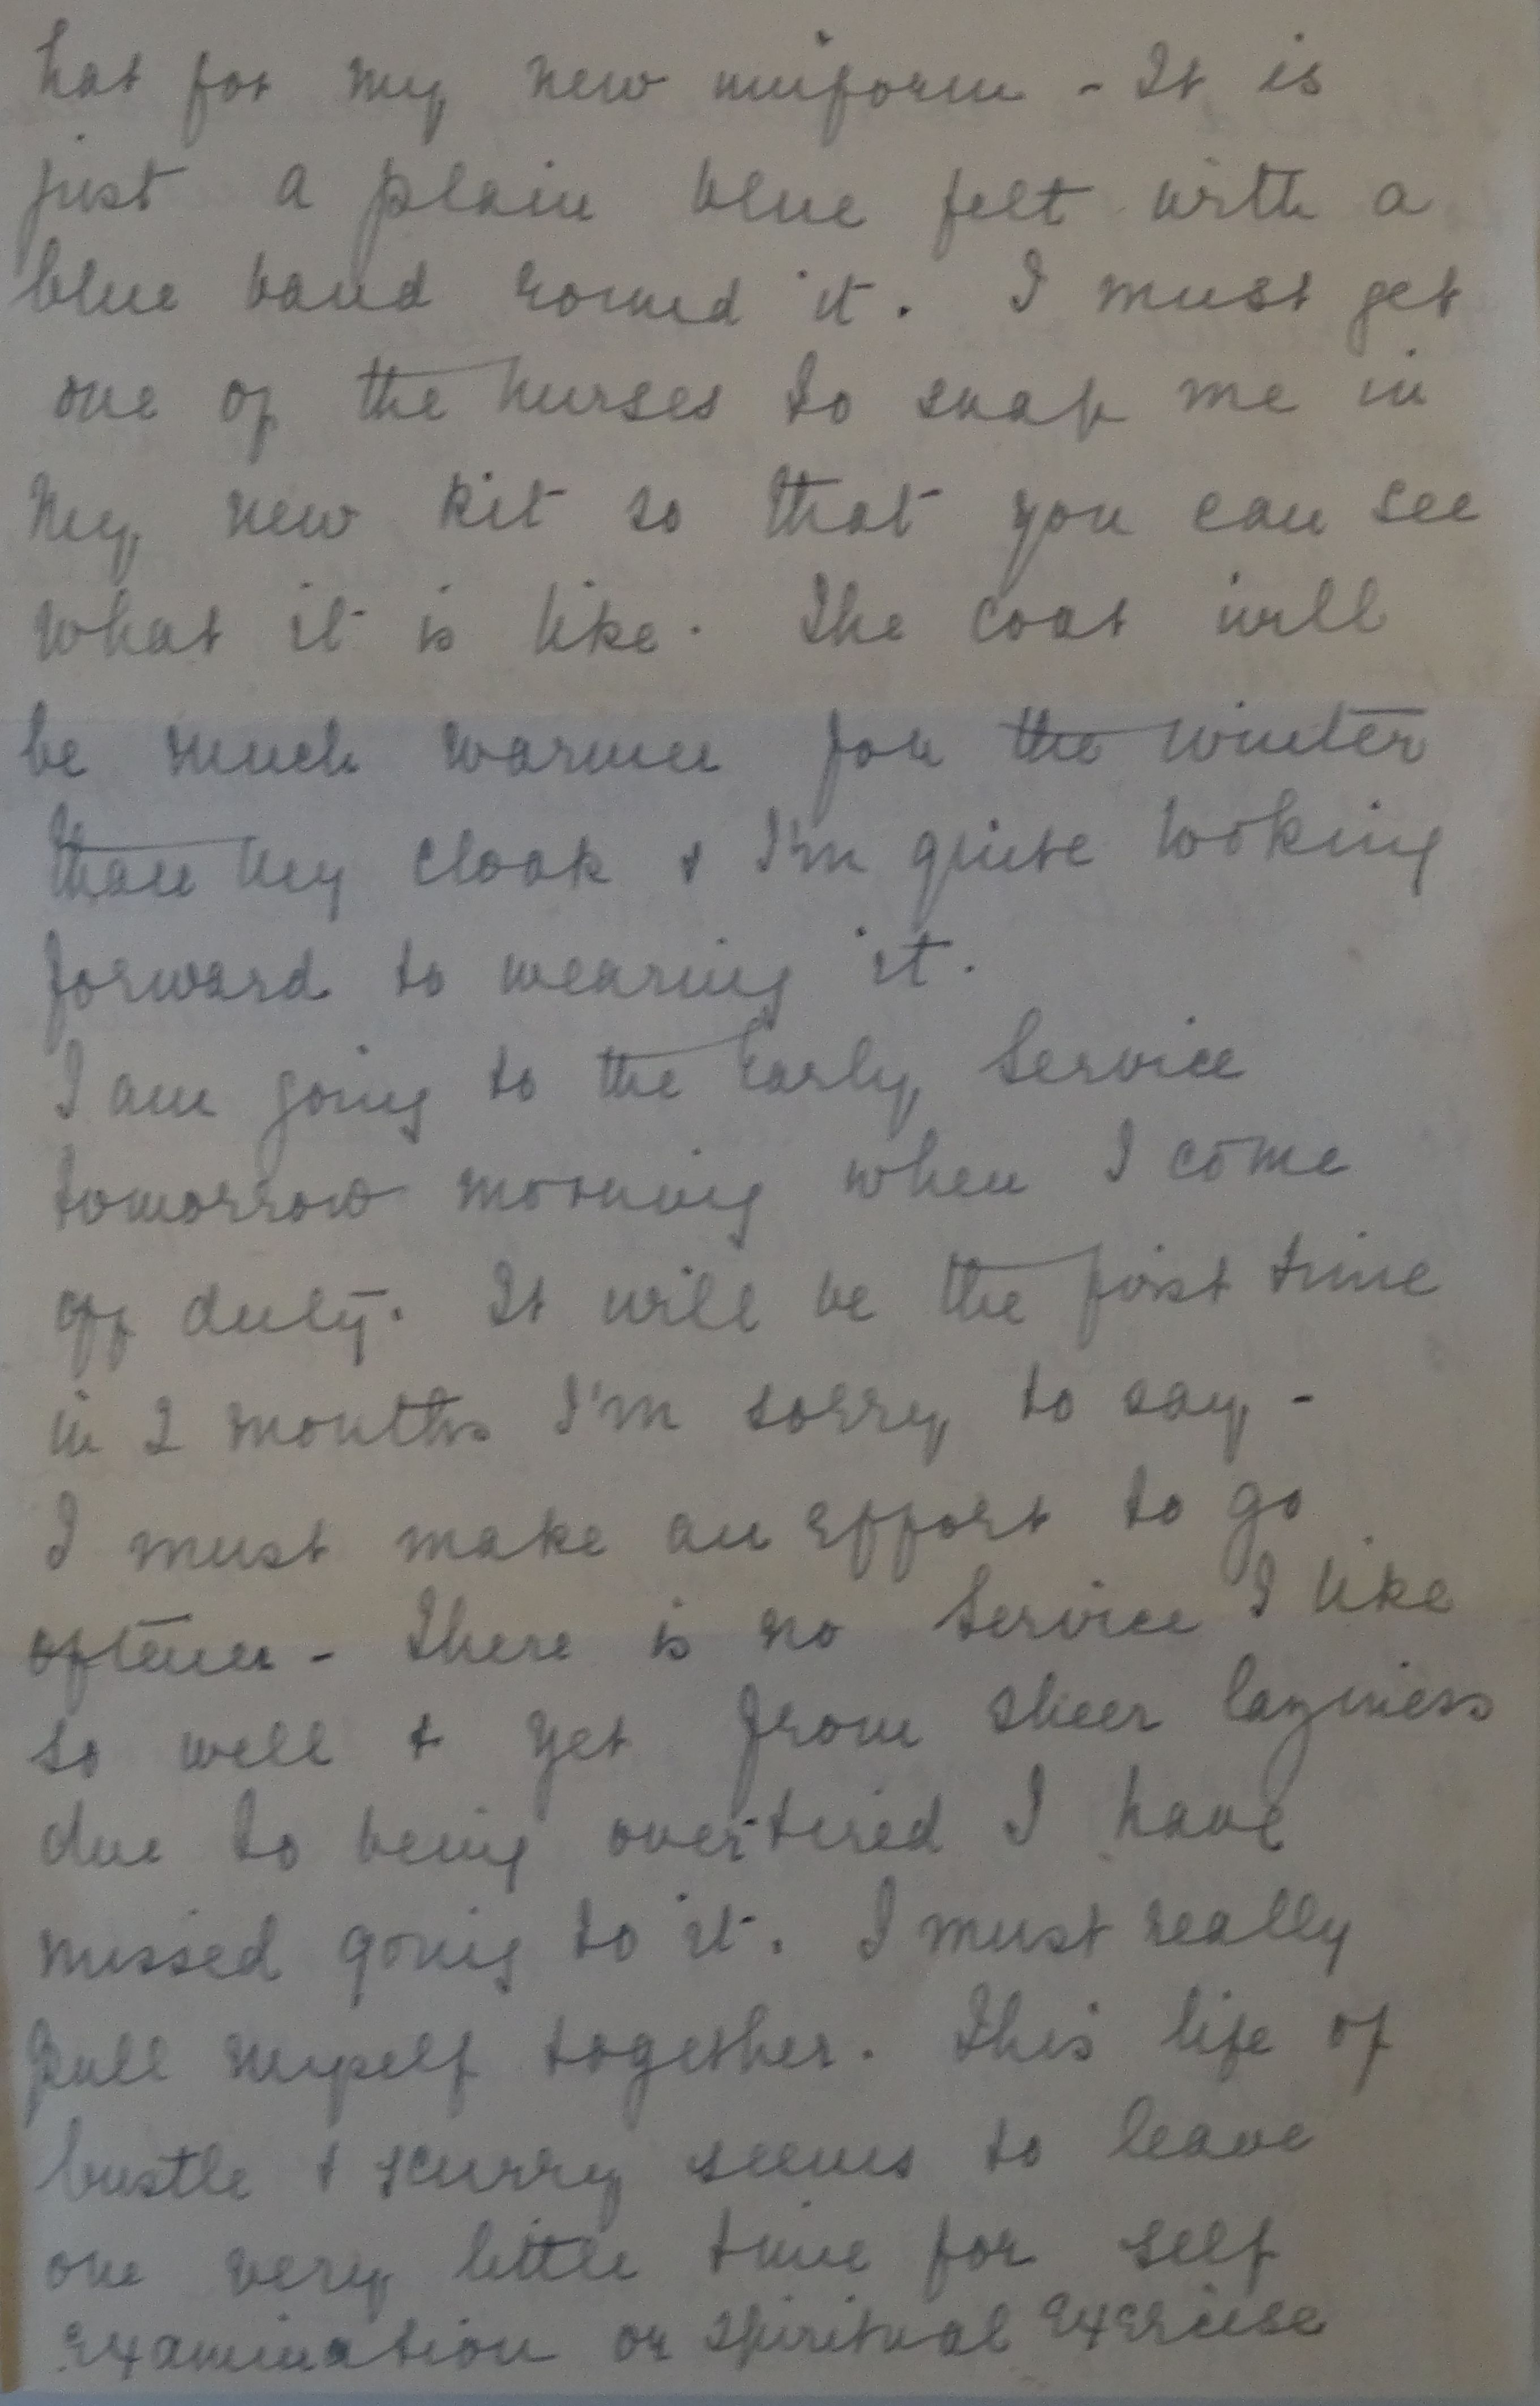 hat for my new uniform - It is
just a plain blue felt with a
blue band round it. I must get
one of the nurses to snap me in
my new kit so that you can see
what it is like. The coat will
be much warmer for the winter
than my cloak & I'm quite looking
forward to wearing it.
I am going to the Early Service
tomorrow morning when I come
off duty. It will be the first time
in 2 months I'm sorry to say -
I must make an effort to go
oftener - There is no Service I like
so well & yet from sheer laziness
due to being overtired I have
missed going to it. I must really
pull myself together. This life of
bustle & scurry seems to leave
one very little time for self
examination or spiritual exercise